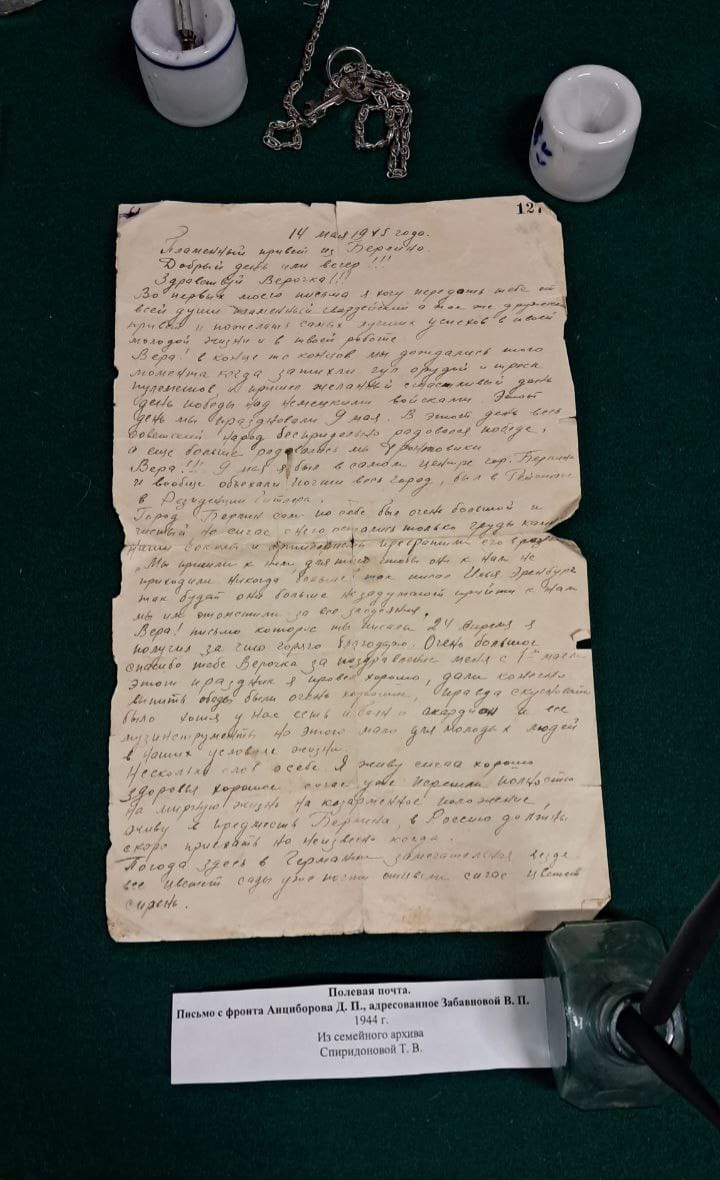 127
14 мая 1945 года.
Пламенный привет из Берлина.
Добрый день или вечер!!!
Здравствуй Верочка!!!
Во первых моего письма я хочу передать тебе от
всей души пламенный гвардейский а так же дружеский
привет и пожелать самых лучших успехов в твоей
молодой жизни и в твоей работе
Вера! в конце то концов мы дождались того
момента когда затихли гул орудий и треск
пулеметов и пришел желанный счастливый день
день победы над немецкими войсками. Этот
день мы праздновали 9 мая. В этот день весь
советский народ беспредельно радовался победе,
а еще больше радовались мы фронтовики
Вера!!! 9 мая я был в самом центре гор. Берлина
и вообще объехали почти весь город, был в
в Резиденции Гитлера.
Город Берлин сам по себе был очень большой и
чистый но сичас с него остались только груды
наши и артиллерия превратили его в
"Мы пришли к ним для того чтобы они к нам не
приходили никогда больше" так писал Илья Эренбург
так будет они больше незадумают прийти к нам
мы им отомстили за все злодеяния.
Вера! письмо которое ты писала 24 апреля я
получил за что горячо благодарю. Очень большое
спасибо тебе Верочка за поздравление меня с 1ᵐ маем
этот праздник я провел хорошо, дали конечно
выпить обеды были очень хорошие, правда скучновато
было хотя у нас есть и аккардион и все
музинструменты но этого мало для молодых людей
в наших условиях жизни.
Несколько слов о себе. Я живу сичас хорошо
здоровье хорошее сичас уже перешли полностью
на мирную жизнь на казарменное положение,
живу в предместь Берлина, в Россию должны
скоро приехать но неизвесно когда.
Погода здесь в Германии замечательная везде
все цветет сады уже почти отцвели сичас цветет
сирень.
Полевая почта.
Письмо с фронта Анциборова Д. П., адресованное Забавновой В. П.
1944 г.
Из семейного архива
Спиридоновой Т. В.